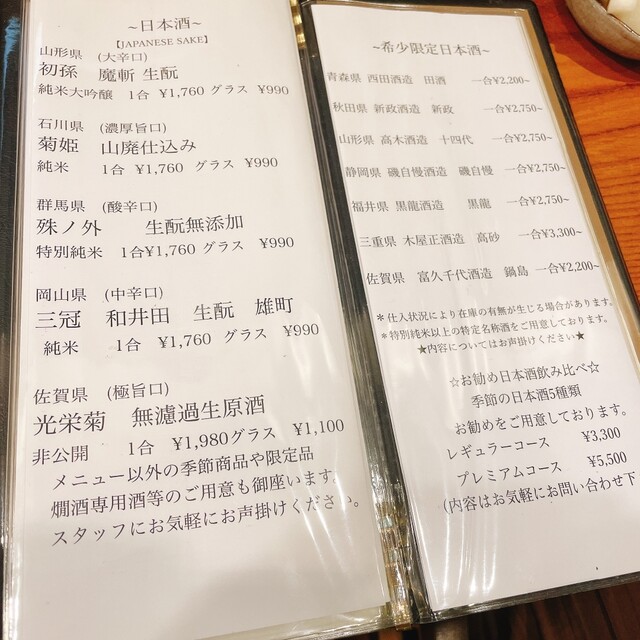 ~日本酒~
【JAPANESE SAKE】
山形県 (大辛口)
初孫 魔斬 生酛
純米大吟醸 1合 ¥1,760 グラス ¥990
石川県 (濃厚旨口)
菊姫 山廃仕込み
純米 1合 ¥1,760 グラス ¥990
群馬県 (酸辛口)
殊ノ外 生酛無添加
特別純米 1合¥1,760 グラス ¥990
岡山県 (中辛口)
三冠 和井田 生酛 雄町
純米 1合 ¥1,760 グラス ¥990
佐賀県 (極旨口)
光栄菊 無濾過生原酒
非公開 1合 ¥1,980グラス ¥1,100
メニュー以外の季節商品や限定品
燗酒専用酒等のご用意も御座います。
スタッフにお気軽にお声掛けください。
~希少限定日本酒~
青森県 西田酒造 田酒 一合¥2,200~
秋田県 新政酒造 新政 一合¥2,750~
山形県 高木酒造 十四代 一合¥2,750~
静岡県 磯自慢酒造 磯自慢 一合¥2,750~
福井県 黒龍酒造 黒龍 一合¥2,750~
三重県 木屋正酒造 高砂 一合¥3,300~
佐賀県 富久千代酒造 鍋島 一合¥2,200~
＊仕入状況により在庫の有無が生じる場合があります。
＊特別純米以上の特定名称酒をご用意しております。
★内容についてはお声掛けください★
☆お勧め日本酒飲み比べ☆
季節の日本酒5種類
お勧めをご用意しております。
レギュラーコース ¥3,300
プレミアムコース ¥5,500
(内容はお気軽にお問い合わせ下